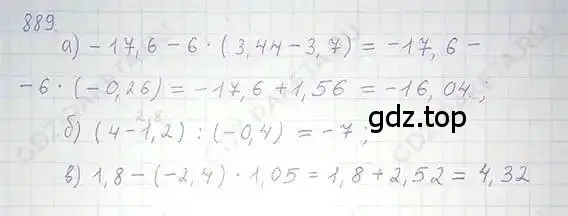 889.
а) -17,6 - 6 · (3,44 - 3,7) = -17,6 -
-6 · (-0,26) = -17,6 + 1,56 = -16,04 ;
2,8
б) (4 - 1,2) : (-0,4) = -7 ;
гдз.топ
в) 1,8 - (-2,4) · 1,05 = 1,8 + 2,52 = 4,32